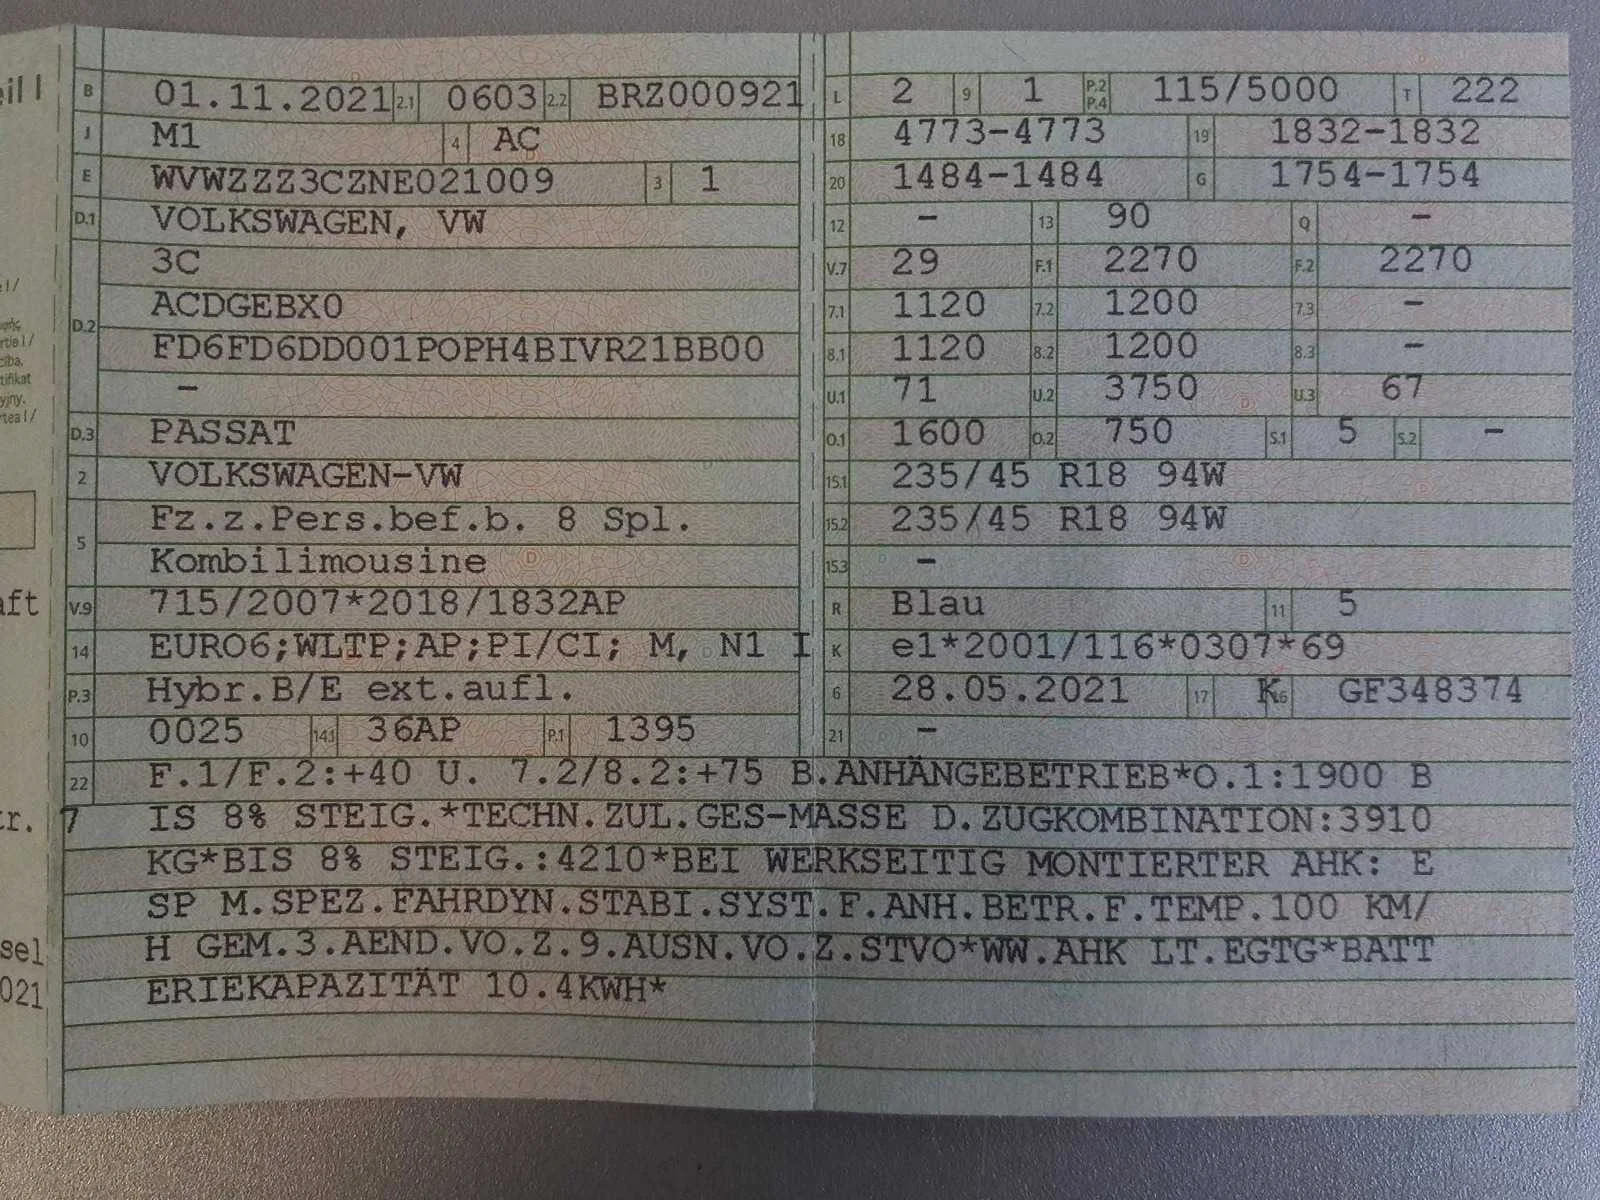 eil I
B 01.11.2021 2.1 0603 2.2 BRZ000921
J M1 4 AC
E WVWZZZ3CZNE021009 3 1
D.1 VOLKSWAGEN, VW
3C
ACDGEBX0
D.2
FD6FD6DD001POPH4BIVR21BB00
-
D.3 PASSAT
2 VOLKSWAGEN-VW
Fz.z.Pers.bef.b. 8 Spl.
5
Kombilimousine
aft
V.9 715/2007*2018/1832AP
14 EURO6;WLTP;AP;PI/CI; M, N1 I
P.3 Hybr.B/E ext.aufl.
10 0025 14.1 36AP P.1 1395
L 2 9 1 P.2 P.4 115/5000 T 222
18 4773-4773 19 1832-1832
20 1484-1484 G 1754-1754
12 - 13 90 Q -
V.7 29 F.1 2270 F.2 2270
7.1 1120 7.2 1200 7.3 -
8.1 1120 8.2 1200 8.3 -
U.1 71 U.2 3750 U.3 67
O.1 1600 O.2 750 S.1 5 S.2 -
15.1 235/45 R18 94W
15.2 235/45 R18 94W
15.3 -
R Blau 11 5
K e1*2001/116*0307*69
6 28.05.2021 17 K 16 GF348374
21 -
22 F.1/F.2:+40 U. 7.2/8.2:+75 B.ANHÄNGEBETRIEB*O.1:1900 B
tr. 7 IS 8% STEIG.*TECHN.ZUL.GES-MASSE D.ZUGKOMBINATION:3910
KG*BIS 8% STEIG.:4210*BEI WERKSEITIG MONTIERTER AHK: E
SP M.SPEZ.FAHRDYN.STABI.SYST.F.ANH.BETR.F.TEMP.100 KM/
sel H GEM.3.AEND.VO.Z.9.AUSN.VO.Z.STVO*WW.AHK LT.EGTG*BATT
021 ERIEKAPAZITÄT 10.4KWH*